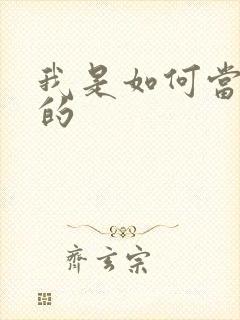 我是如何當
的
齊玄宗